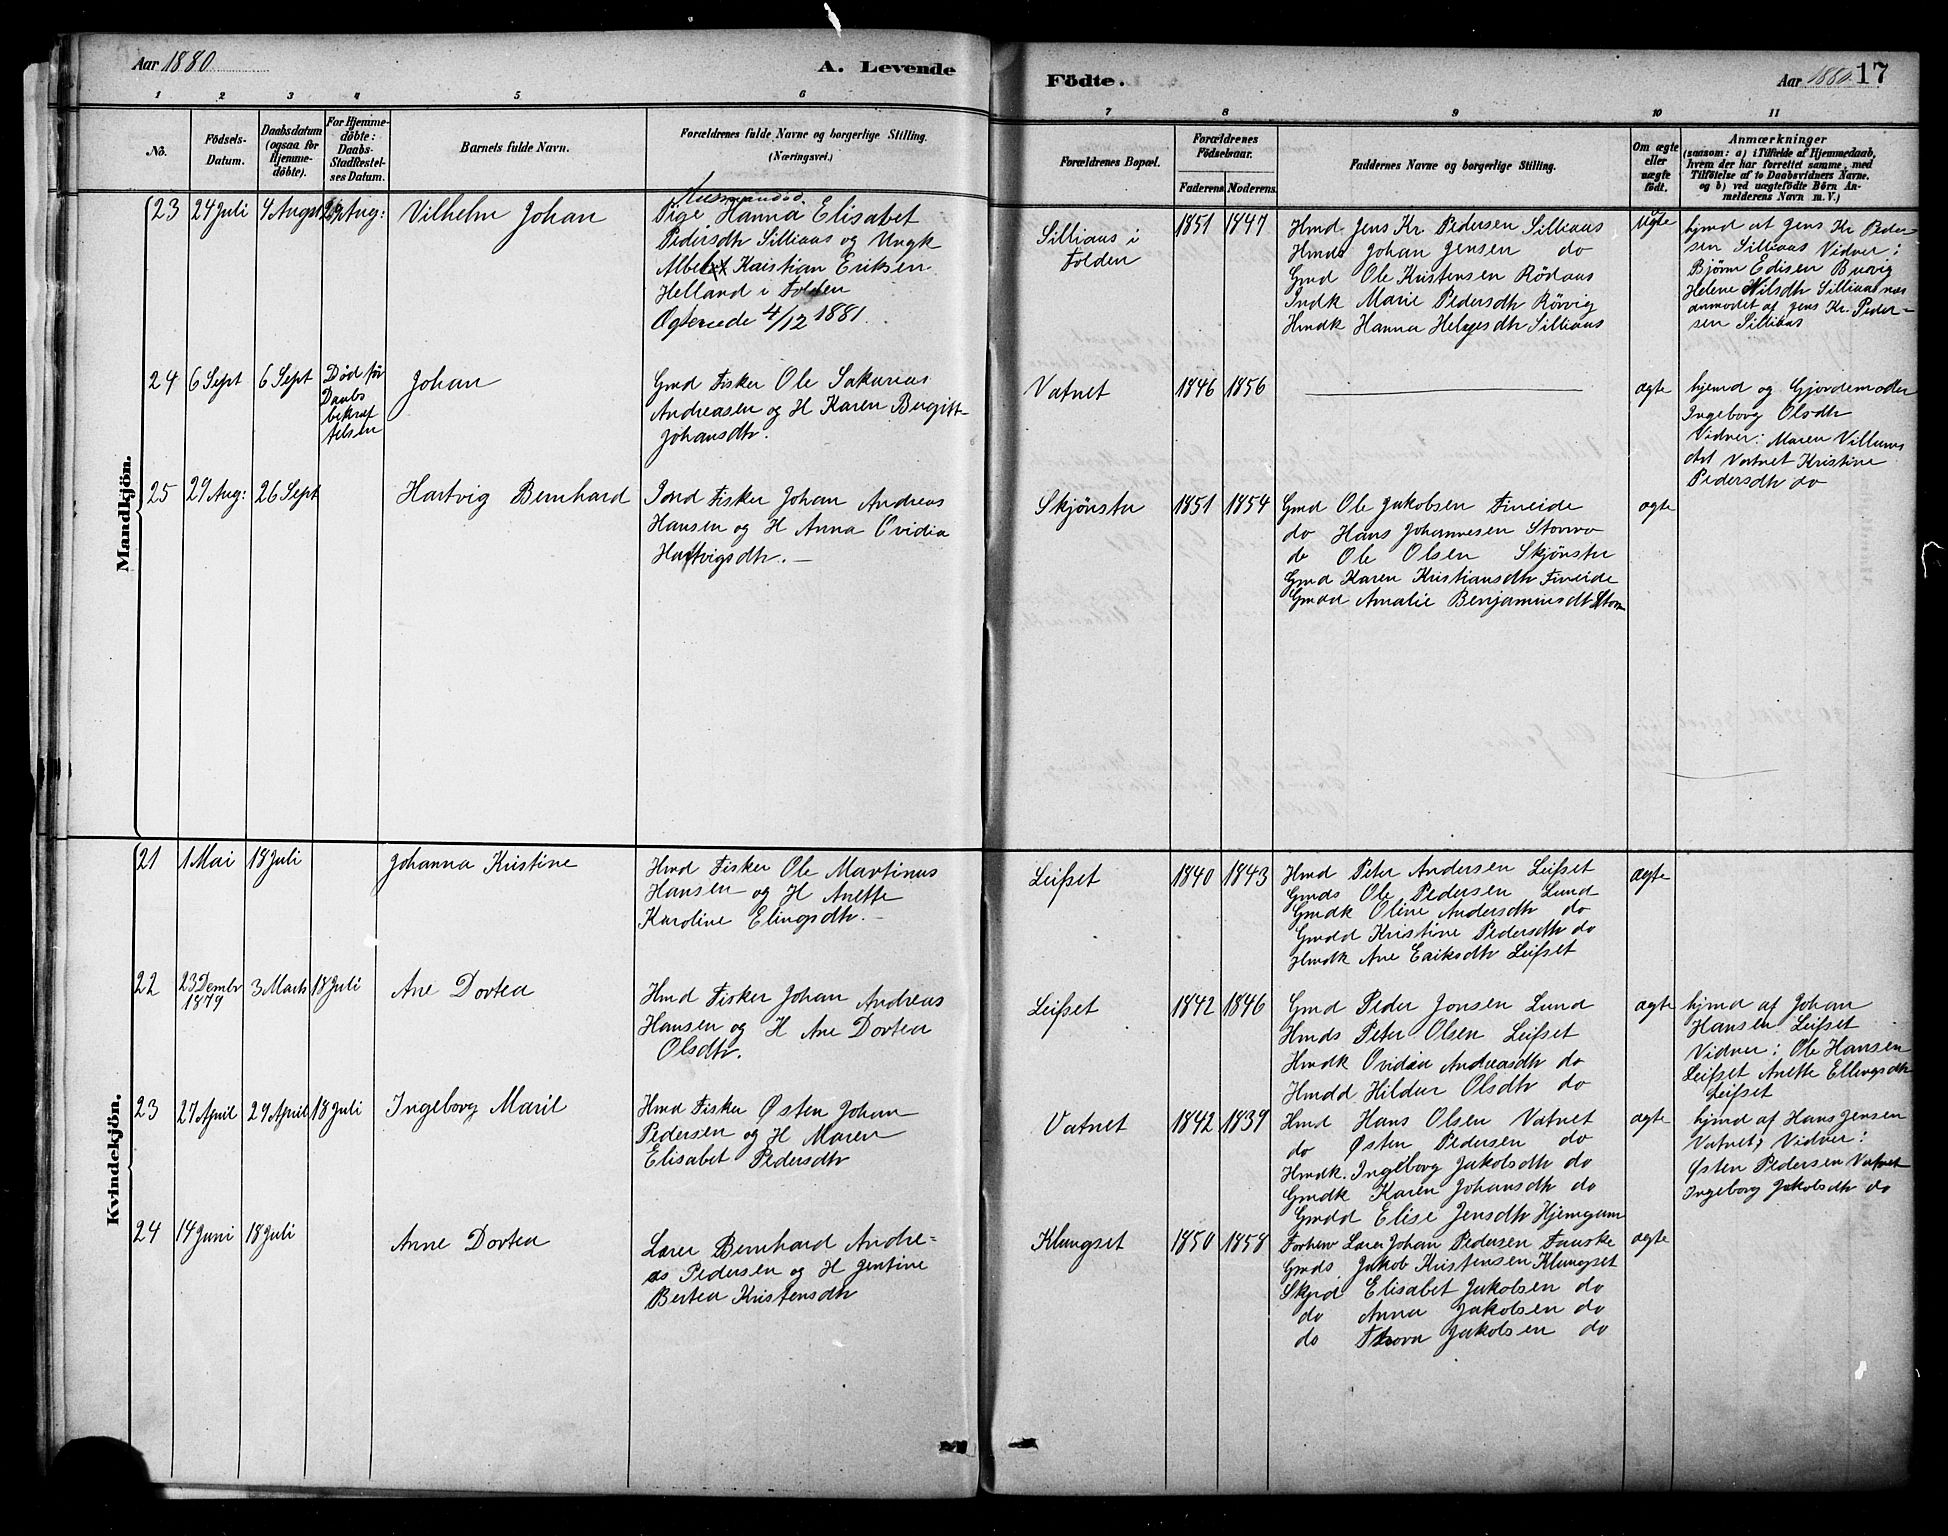 Aar 1880
A. Levende
Födte.
Aar 1880 17
1 2 3 4 5 6 7 8 9 10 11
No.
Födsels-Datum.
Daabsdatum (ogsaa for Hjemmedöbte).
For Hjemmedöbte: Daabs-Stadfæstelses Datum.
Barnets fulde Navn.
Forældrenes fulde Navne og borgerlige Stilling.
(Næringsvei.)
Forældrenes Bopæl.
Forældrenes Födselsaar.
Faderens. Moderens.
Faddernes Navne og borgerlige Stilling.
Om ægte eller uægte födt.
Anmærkninger
(saasom: a) i Tilfælde af Hjemmedaab, hvem der har forrettet samme, med Tilföielse af to Daabsvidners Navne. og b) ved uægtefödte Börn Anmelderens Navn m. V.)
Mandkjön.
23 24 Juli 4 August 29 Aug: Vilhelm Johan
Pige Hanna Elisabet
Pedersdtr Silliaas og Ungk
Kristian Eriksen
Helland i Folden
4/12 1881.
Silliaas i
Folden
1851 1847
Hmd Jens Kr. Pedersen Silliaas
Hmds Johan Jensen do
Gmd Ole Kristensen Rödaas
Indk Marie Pedersdtr Rövig
Hmdk Hanna Helgesdtr Silliaas
Uægte
hjmd af Jens Kr. Peder-
sen Silliaas Vidner:
Bjørn Edisen Buvig
Helene Nilsdtr Silliaas
anmodet af Jens Kr. Peder-
sen Silliaas
24 6 Sept 6 Sept Død før
Daabs
bekræf
telsen
Johan
Gmd Fisker Ole Sakarias
Andreasen og H Karen Bergitt-
Johansdtr.
Vatnet
1846 1856
ægte
hjemd og Gjordemoder
Ingeborg Olsdtr
Vidner: Maren Villums
dtr Vatnet Kristine
Pedersdtr do
25 29 Aug: 26 Sept Hartvig Bernhard
Fisker Johan Andreas
Hansen og H Anna Ovidia
Hartvigsdtr. —
Skjønstu
1851 1854
Gmd Ole Jakobsen Fineide
do Hans Johannesen Storma
do Ole Olsen Skjønstu
Gmd Karen Kristiansdtr Fineide
Gmdd Amalie Benjaminsdtr Storm
ægte
Kvindekjön.
21 1 Mai 18 Juli Johanna Kristine
Hmd Fisker Ole Martinus
Hansen og H Anette
Karoline Elingsdtr. —
Leifset
1840 1843
Hmd Peter Andersen Leifset
Gmds Ole Pedersen Lund
Gmdk Oline Andersdtr do
Gmdd Kristine Pedersdtr do
Hmdk Ane Eriksdtr Leifset
ægte
22 23 Dembr
1879
3 Marts 18 Juli Ane Dortea
Hmd Fisker Johan Andreas
Hansen og H Ane Dortea
Olsdtr.
Leifset
1842 1846
Gmd Peder Jonsen Lund
Hmds Peter Olsen Leifset
Hmdk Ovidia Andreasdtr do
Hmdd Hildur Olsdtr do
ægte
hjmd af Johan
Hansen Leifset
Vidner: Ole Hansen
Leifset Anette Ellingsdtr
Leifset
23 27 April 29 April 18 Juli Ingeborg Maril
Hmd Fisker Østen Johan
Pedersen og H Maren
Elisabet Pedersdtr
Vatnet
1842 1839
Hmd Hans Olsen Vatnet
do Østen Pedersen do
Hmdk. Ingeborg Jakobsdtr do
Gmdk Karen Johansdtr do
Gmdd Elise Jensdtr Hjemgam
ægte
hjmd af Hans Jensen
Vatnet, Vidner:
Østen Pedersen Vatnet
Ingeborg Jakobsdtr do
24 14 Juni 18 Juli Anne Dortea
Lærer Bernhard Andre-
as Pedersen og H Jentine
Bertea Kristensdtr
Klungset
1850 1858
Lærer Johan Pedersen Fauske
Gmds Jakob Kristensen Klungset
Elisabet Jakobsen do
do Anna Jakobsen do
do Thora Jakobsen do
ægte